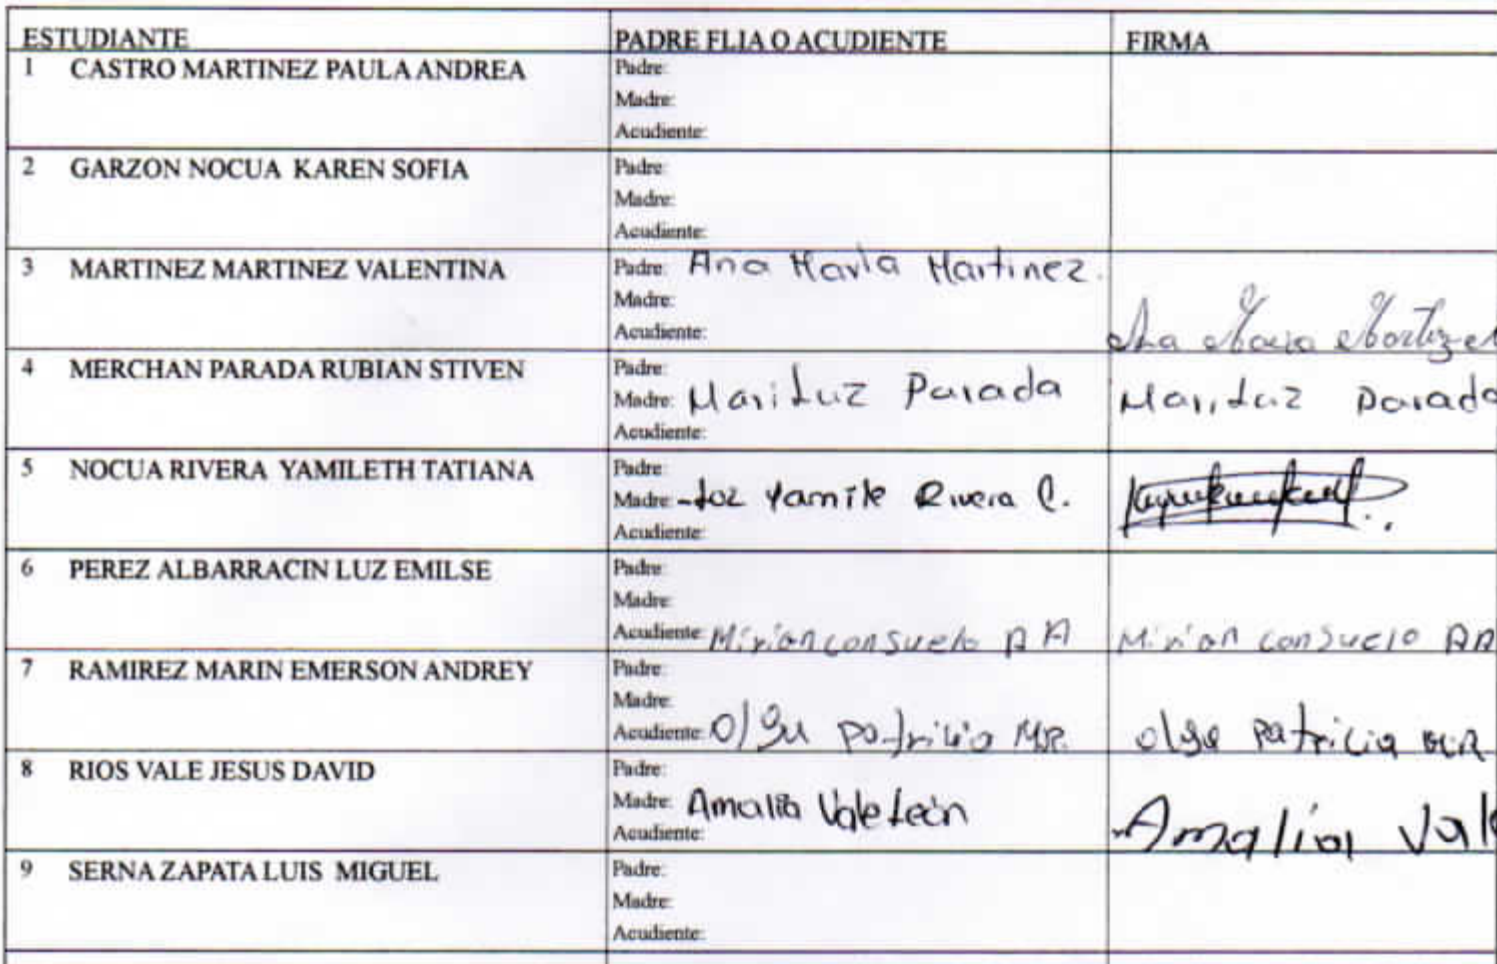 ESTUDIANTE PADRE FLIA O ACUDIENTE FIRMA
1 CASTRO MARTINEZ PAULA ANDREA Padre:
Madre:
Acudiente:
2 GARZON NOCUA KAREN SOFIA Padre:
Madre:
Acudiente:
3 MARTINEZ MARTINEZ VALENTINA Padre: Ana María Martinez.
Madre:
Acudiente: Ana Maria
4 MERCHAN PARADA RUBIAN STIVEN Padre:
Madre: Mari Luz Parada Mari Luz Parada
Acudiente:
5 NOCUA RIVERA YAMILETH TATIANA Padre:
Madre: Luz Yamile Rivera C.
Acudiente:
6 PEREZ ALBARRACIN LUZ EMILSE Padre:
Madre:
Acudiente: Mirian consuelo A A Mirian consuelo AA
7 RAMIREZ MARIN EMERSON ANDREY Padre:
Madre:
Acudiente: Olga patricia M.R. olga patricia M.R
8 RIOS VALE JESUS DAVID Padre:
Madre: Amalia Vale León Amalia Vale
Acudiente:
9 SERNA ZAPATA LUIS MIGUEL Padre:
Madre:
Acudiente: